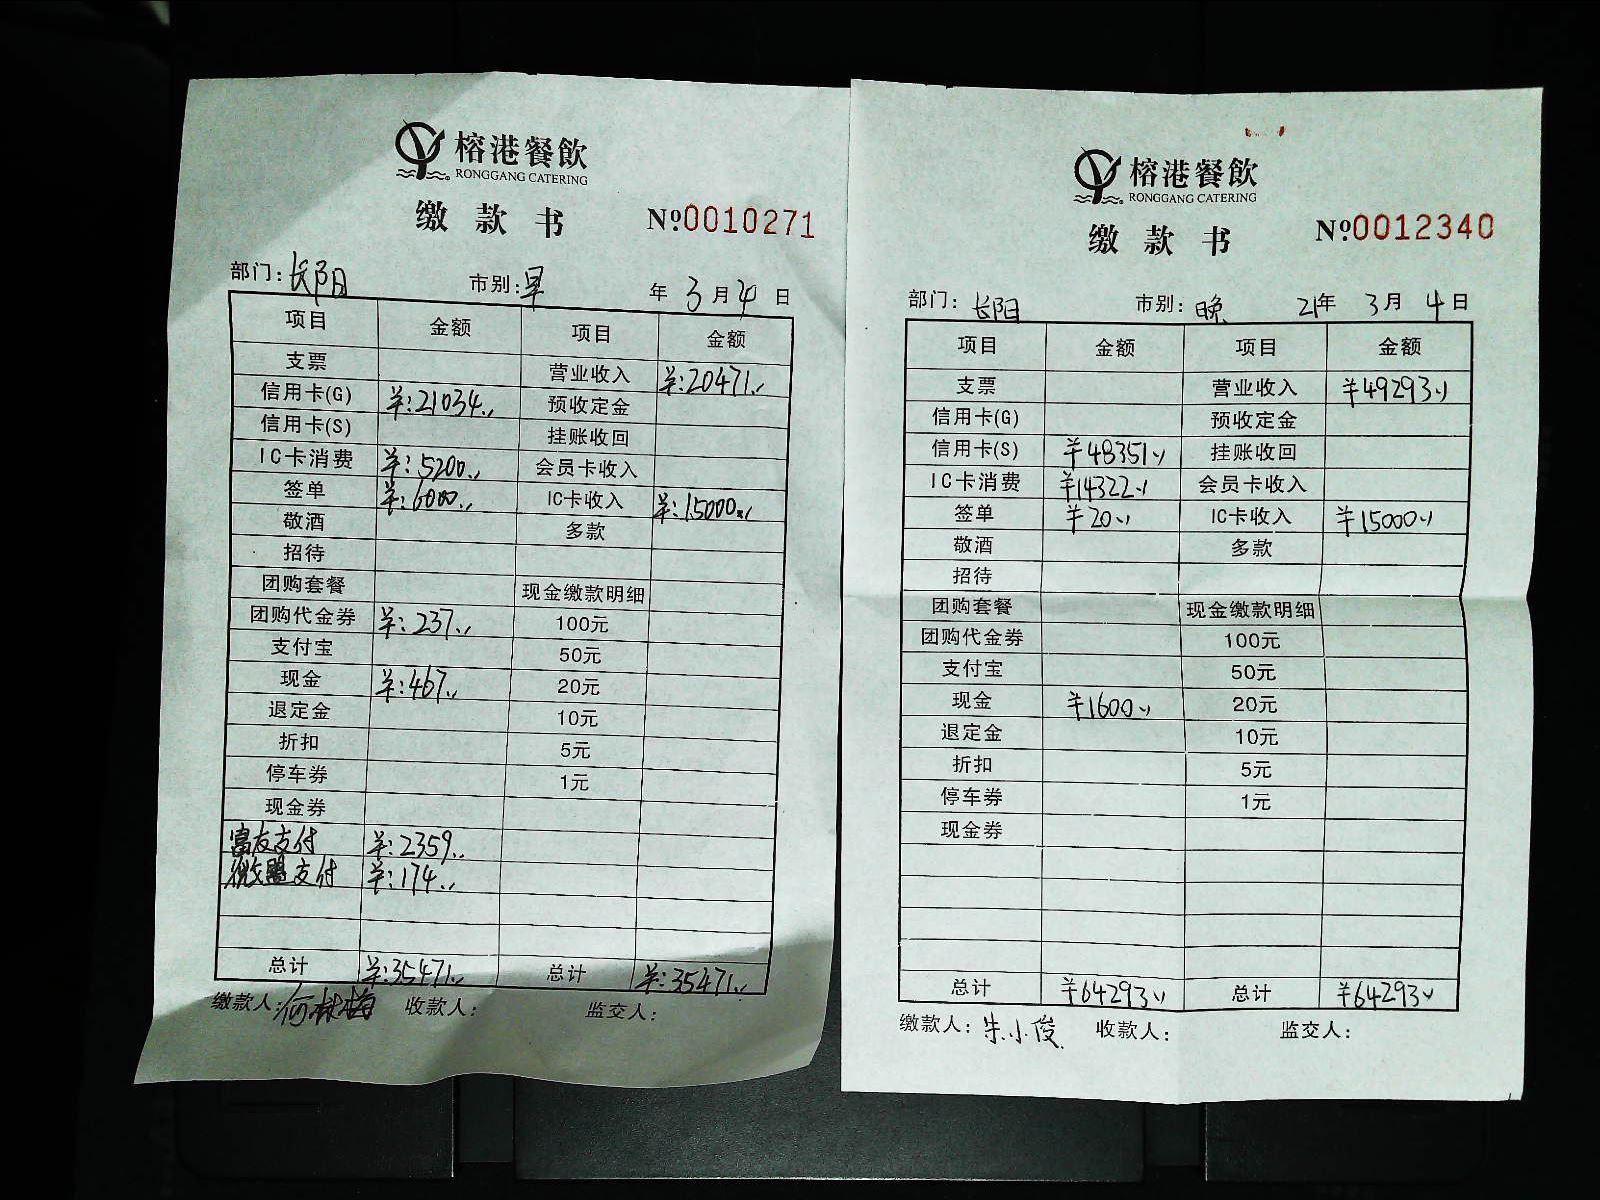 榕港餐飲
RONGGANG CATERING
缴款书 №0010271
部门：长阳 市别：早 年 3月4日
项目 金额 项目 金额
支票 营业收入 ¥:20471..
信用卡(G) ¥:21034.. 预收定金
信用卡(S) 挂账收回
IC卡消费 ¥:5200.. 会员卡收入
签单 ¥:6000.. IC卡收入 ¥:15000..
敬酒 多款
招待
团购套餐 现金缴款明细
团购代金券 ¥:237.. 100元
支付宝 50元
现金 ¥:467.. 20元
退定金 10元
折扣 5元
停车券 1元
现金券
富友支付 ¥:2359..
微盟支付 ¥:174..
总计 ¥:35471.. 总计 ¥:35471..
缴款人：何林梅 收款人： 监交人：
榕港餐飲
RONGGANG CATERING
缴款书 №0012340
部门：长阳 市别：晚 21年 3月4日
项目 金额 项目 金额
支票 营业收入 ¥49293..
信用卡(G) 预收定金
信用卡(S) ¥48351.. 挂账收回
IC卡消费 ¥14322.. 会员卡收入
签单 ¥20.. IC卡收入 ¥15000..
敬酒 多款
招待
团购套餐 现金缴款明细
团购代金券 100元
支付宝 50元
现金 ¥1600.. 20元
退定金 10元
折扣 5元
停车券 1元
现金券
总计 ¥64293.. 总计 ¥64293..
缴款人：朱小俊 收款人： 监交人：